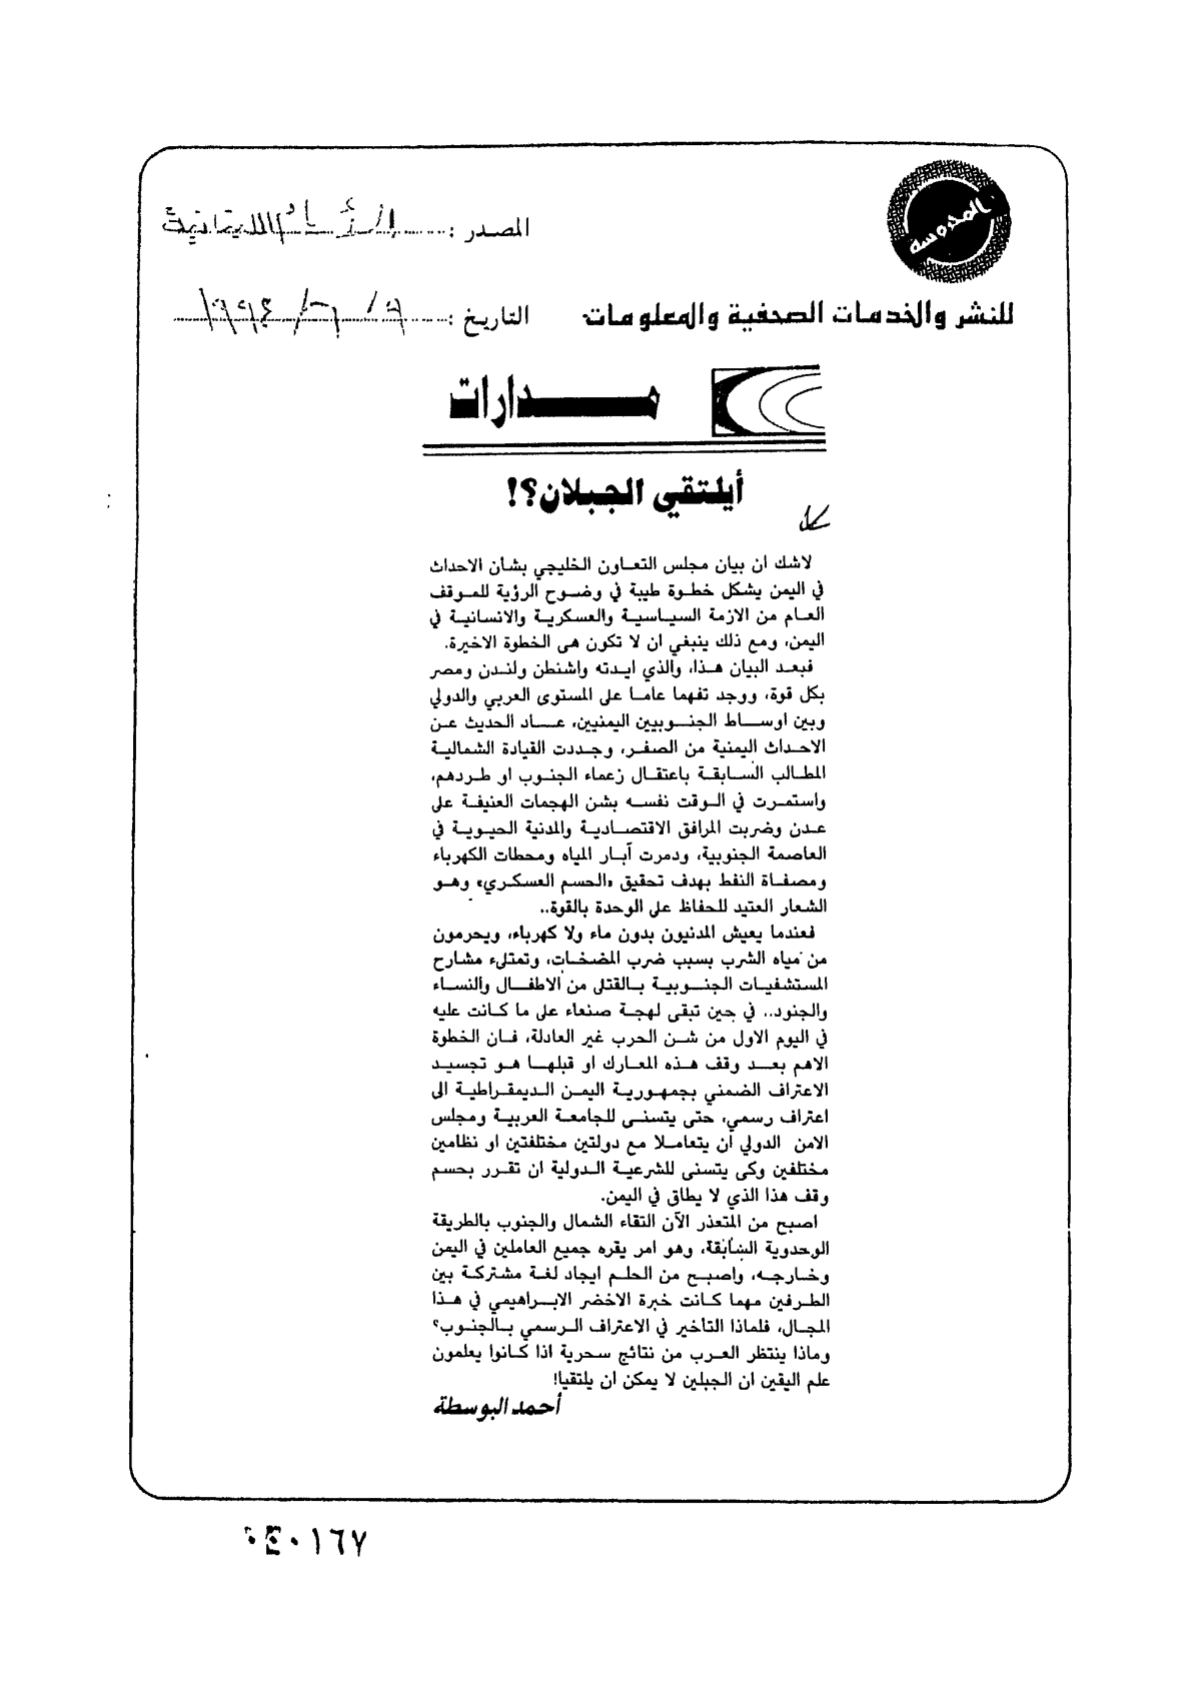 المحروسه
المصدر :
للنشر والخدمات الصحفية والمعلومات
التاريخ : ٩ / ٦ / ١٩٩٤
مدارات
أيلتقي الجبلان؟!
لاشك ان بيان مجلس التعاون الخليجي بشأن الاحداث
في اليمن يشكل خطوة طيبة في وضوح الرؤية للموقف
العام من الازمة السياسية والعسكرية والانسانية في
اليمن، ومع ذلك ينبغي ان لا تكون هى الخطوة الاخيرة.
فبعد البيان هذا، والذي ايدته واشنطن ولندن ومصر
بكل قوة، ووجد تفهما عاما على المستوى العربي والدولي
وبين اوساط الجنوبيين اليمنيين، عاد الحديث عن
الاحداث اليمنية من الصفر، وجددت القيادة الشمالية
المطالب السابقة باعتقال زعماء الجنوب او طردهم،
واستمرت في الوقت نفسه بشن الهجمات العنيفة على
عدن وضربت المرافق الاقتصادية والمدنية الحيوية في
العاصمة الجنوبية، ودمرت آبار المياه ومحطات الكهرباء
ومصفاة النفط بهدف تحقيق «الحسم العسكري» وهو
الشعار العتيد للحفاظ على الوحدة بالقوة..
فعندما يعيش المدنيون بدون ماء ولا كهرباء، ويحرمون
من مياه الشرب بسبب ضرب المضخات، وتمتلىء مشارح
المستشفيات الجنوبية بالقتلى من الاطفال والنساء
والجنود.. في حين تبقى لهجة صنعاء على ما كانت عليه
في اليوم الاول من شن الحرب غير العادلة، فان الخطوة
الاهم بعد وقف هذه المعارك او قبلها هو تجسيد
الاعتراف الضمني بجمهورية اليمن الديمقراطية الى
اعتراف رسمي، حتى يتسنى للجامعة العربية ومجلس
الامن الدولي ان يتعاملا مع دولتين مختلفتين او نظامين
مختلفين وكى يتسنى للشرعية الدولية ان تقرر بحسم
وقف هذا الذي لا يطاق في اليمن.
اصبح من المتعذر الآن التقاء الشمال والجنوب بالطريقة
الوحدوية السابقة، وهو امر يقره جميع العاملين في اليمن
وخارجه، واصبح من الحلم ايجاد لغة مشتركة بين
الطرفين مهما كانت خبرة الاخضر الابراهيمي في هذا
المجال، فلماذا التأخير في الاعتراف الرسمي بالجنوب؟
وماذا ينتظر العرب من نتائج سحرية اذا كانوا يعلمون
علم اليقين ان الجبلين لا يمكن ان يلتقيا!
أحمد البوسطة